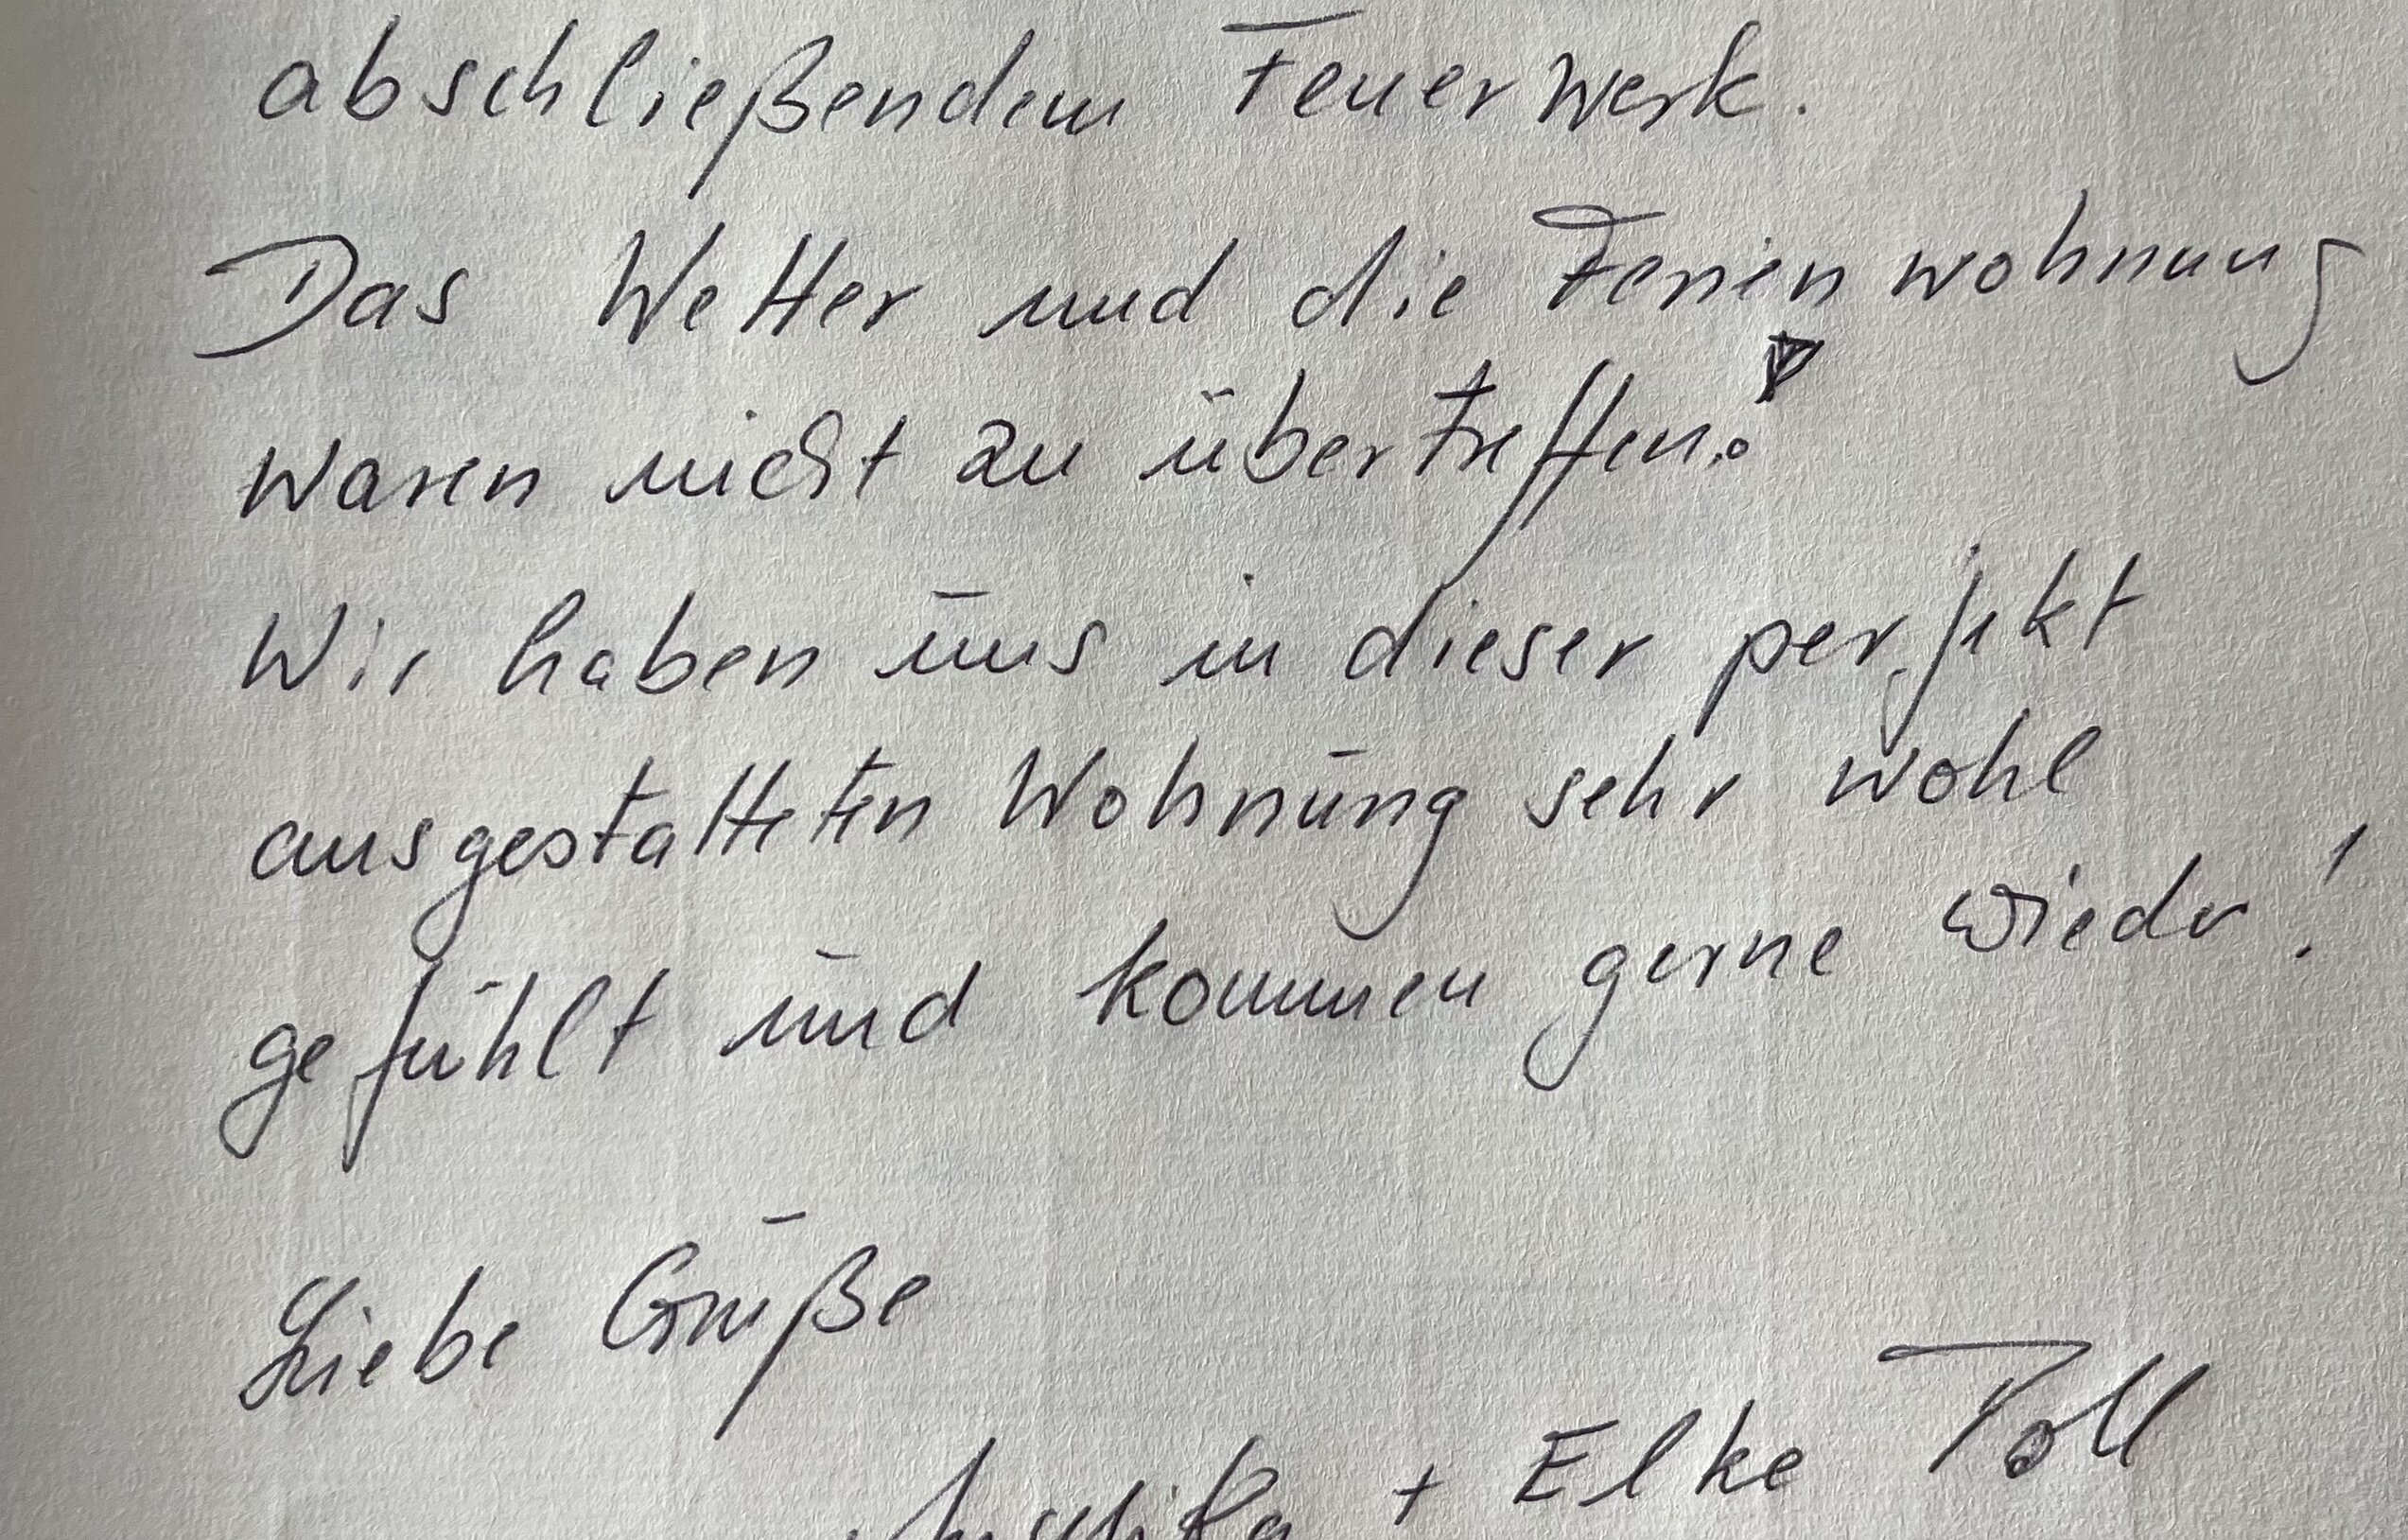 abschließendem Feuerwerk.
Das Wetter und die Ferienwohnung
waren nicht zu übertreffen!
Wir haben uns in dieser perfekt
ausgestatteten Wohnung sehr wohl
gefühlt und kommen gerne wieder!
Liebe Grüße
+ Elke Toll